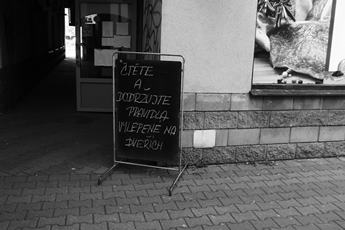 ČTĚTE
A
DODRZUJTE
PRAVIDLA
VYLEPENÉ NA
DVEŘÍCH